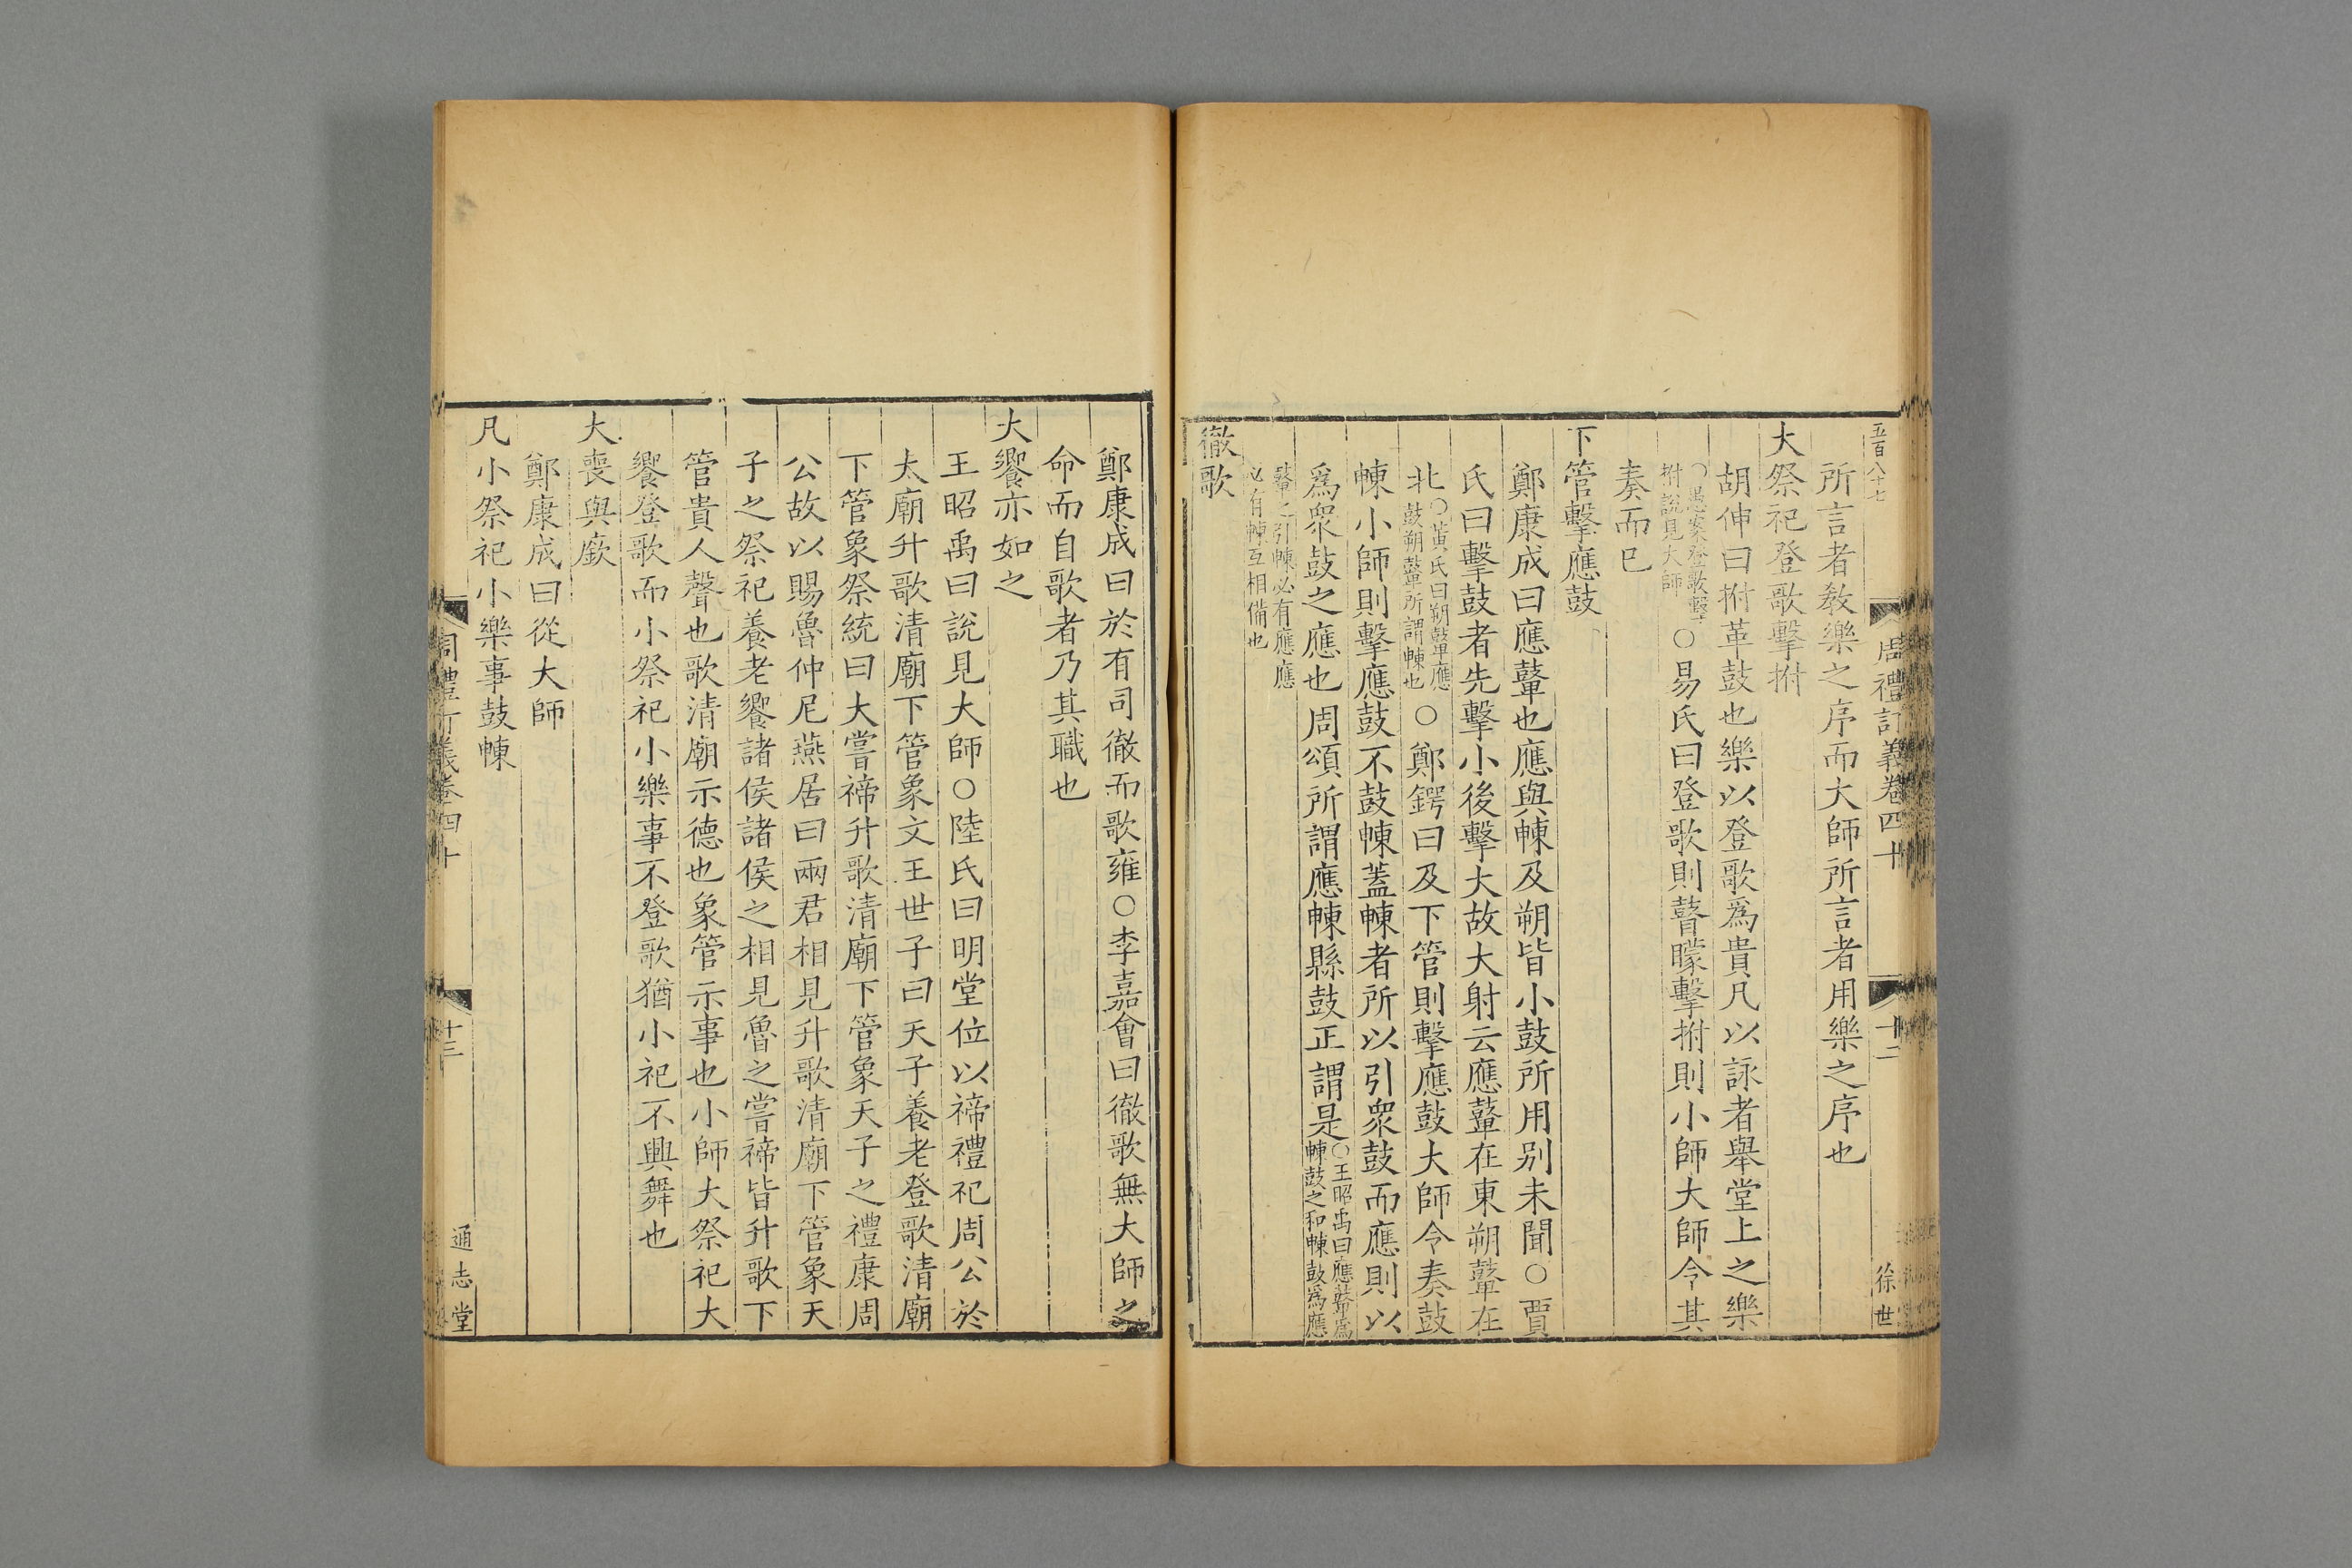 五百八十七
周禮訂義卷四十
十二
徐世
所言者教樂之序而大師所言者用樂之序也
大祭祀登歌擊拊
胡伸曰拊革鼓也樂以登歌爲貴凡以詠者舉堂上之樂
○愚案登歌擊
拊說見大師
○易氏曰登歌則瞽矇擊拊則小師大師令其
奏而已
下管擊應鼓
鄭康成曰應鼙也應與朄及朔皆小鼓所用别未聞○賈
氏曰擊鼓者先擊小後擊大故大射云應鼙在東朔鼙在
北
○黄氏曰朔鼙應
鼓朔鼙所謂朄也
○鄭鍔曰及下管則擊應鼓大師令奏鼓
朄小師則擊應鼓不鼓朄蓋朄者所以引衆鼓而應則以
爲衆鼓之應也周頌所謂應朄縣鼓正謂是
○王昭禹曰應鼙爲
朄鼓之和朄鼓爲應
鼙之引朄必有應應
必有朄互相備也
徹歌
鄭康成曰於有司徹而歌雍○李嘉會曰徹歌無大師之
命而自歌者乃其職也
大饗亦如之
王昭禹曰說見大師○陸氏曰明堂位以禘禮祀周公於
太廟升歌清廟下管象文王世子曰天子養老登歌清廟
下管象祭統曰大嘗禘升歌清廟下管象天子之禮康周
公故以賜魯仲尼燕居曰兩君相見升歌清廟下管象天
子之祭祀養老饗諸侯諸侯之相見魯之嘗禘皆升歌下
管貴人聲也歌清廟示德也象管示事也小師大祭祀大
饗登歌而小祭祀小樂事不登歌猶小祀不興舞也
大喪與廞
鄭康成曰從大師
凡小祭祀小樂事鼓朄
周禮訂義卷四十
十三
通志堂